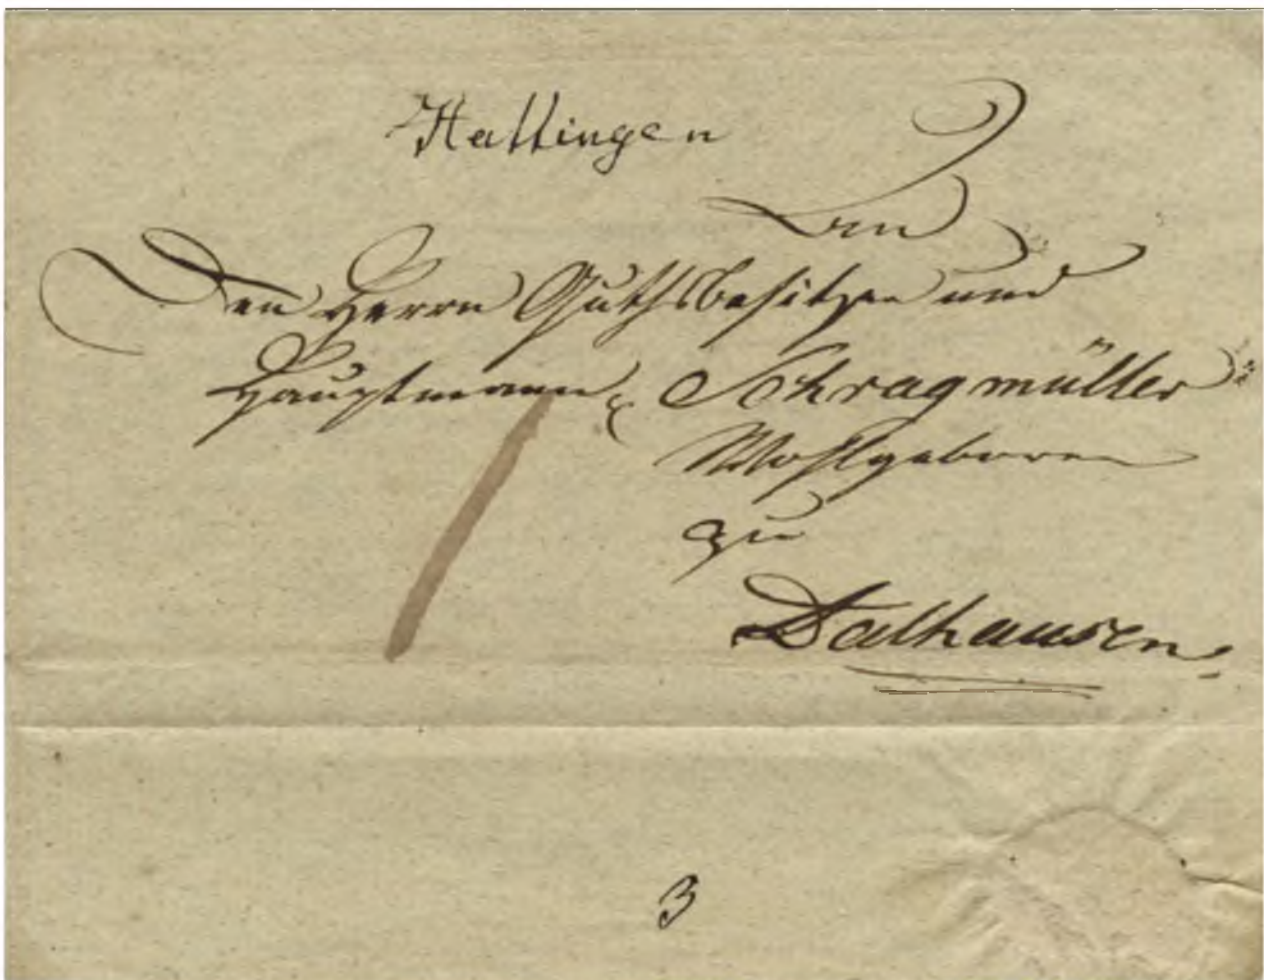 Hattingen
An
Den Herrn Guthsbesitzer und
Hauptmann Schragmüller
Wohlgeboren
zu
Dalhausen.
3